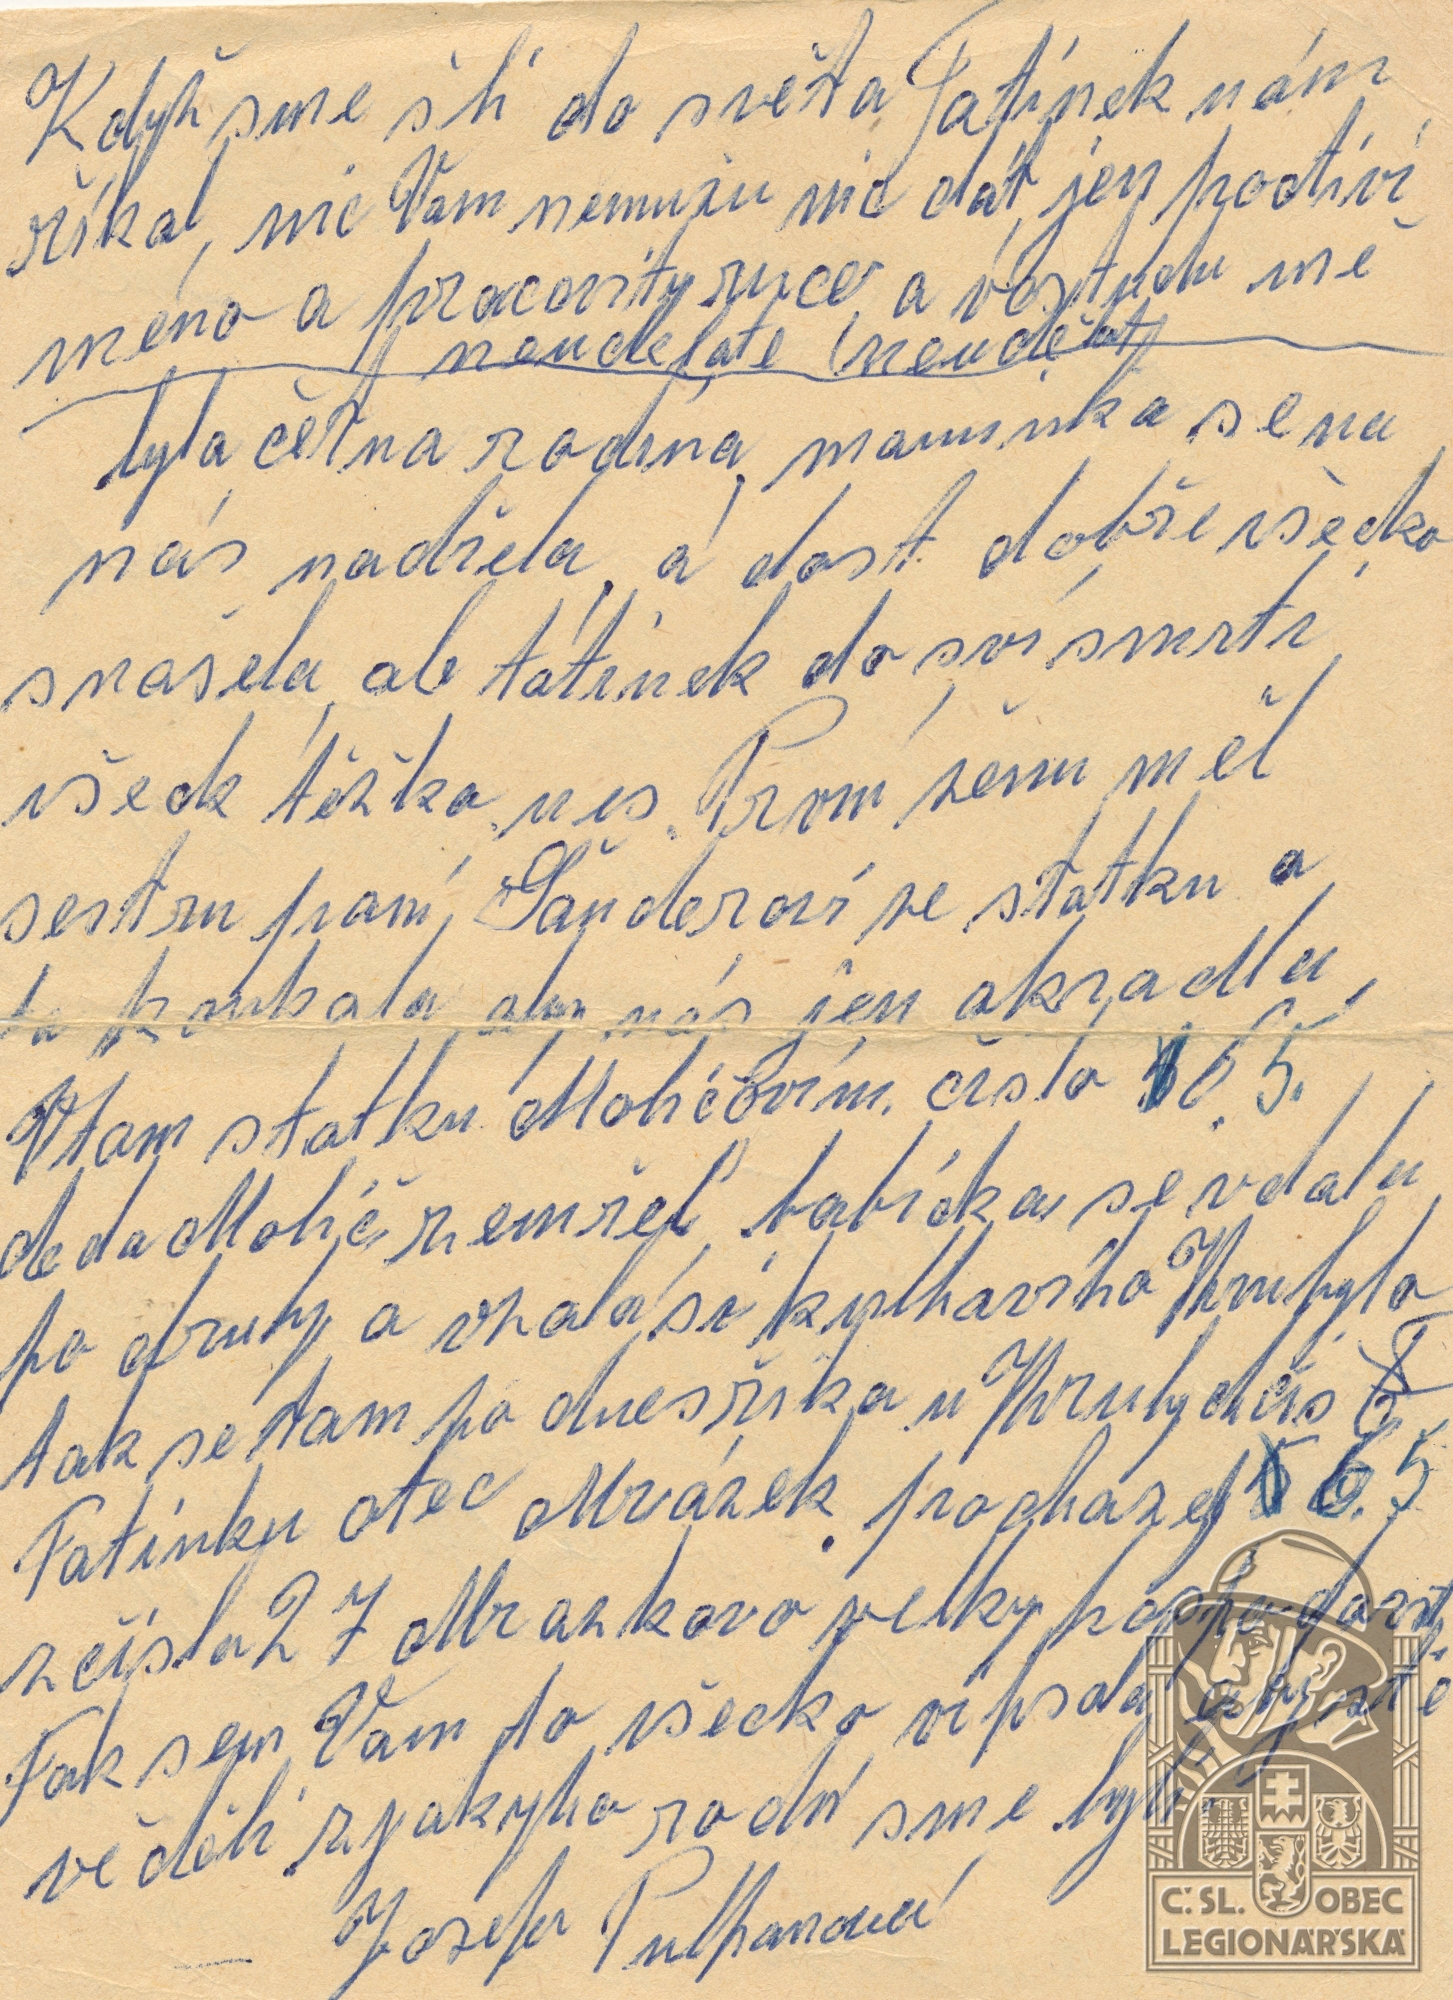 Kdyš sme šli do světa Tatínek nám
říkal, nic Vám nemužu nic dát, jen poctiví
méno a pracovity ruce, a vostudu mě
neudelate (neudělat
byla četna rodina, maminka se na
nás nadřela, a dost dobře všecko
snašela, ale tátinek do sví smrti
všeck těžko nes. Prvni ženu měl
sestru pani, Šanderoví ve statku a
ta koukala aby nás jen okradla,
Vtam statku Moličovím. čislo 65.
deda Molič zemřel babička, se vdala
po druhy a vzala si kulhavího Hrubyho
tak se tam po dnes řika u Hrubych čís 6
Tatinku otec Mrázek, pochazel 6.5
z čísla 27 Mrazkovo velky hospodarst
Tak sem Vam to všecko vipsala, abyste
věděli z jakyho rodu sme byli.
Josefa Pulpanová
Č.SL. OBEC
LEGIONÁŘSKÁ